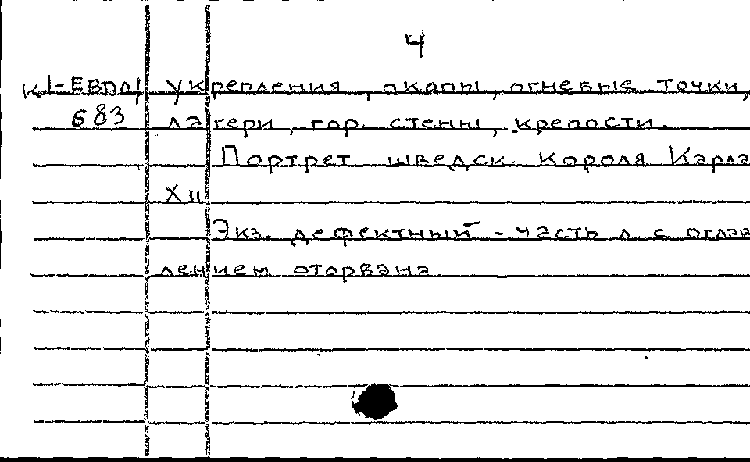 4
укрепления, окопы, огневые точки,
683 лагери, гор. стены, крепости.
Портрет шведск. короля Карла
XII
Экз. дефектный - часть л с оглав
лением оторвана.